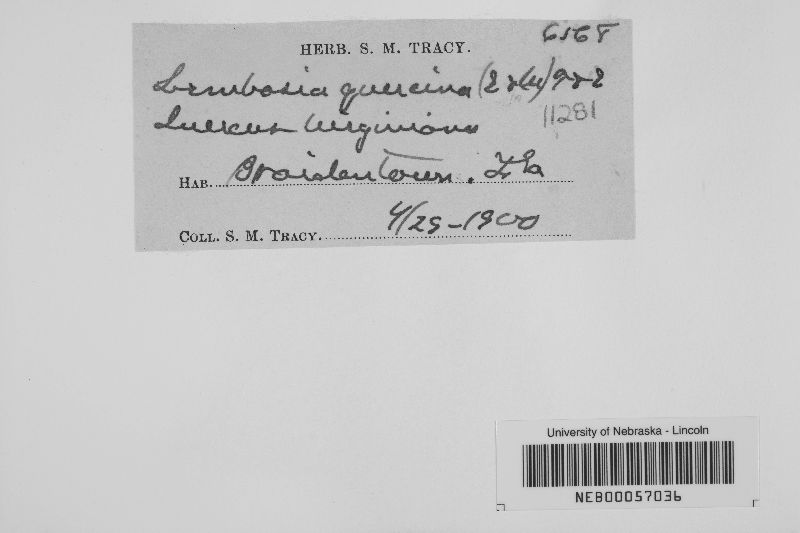 HERB. S. M. TRACY. 6568
Lembosia quercina (E & M) E & E
Quercus virginiana 11281
HAB. Braidentown. Fla
COLL. S. M. TRACY. 4/25-1900
University of Nebraska - Lincoln
NEB00057036